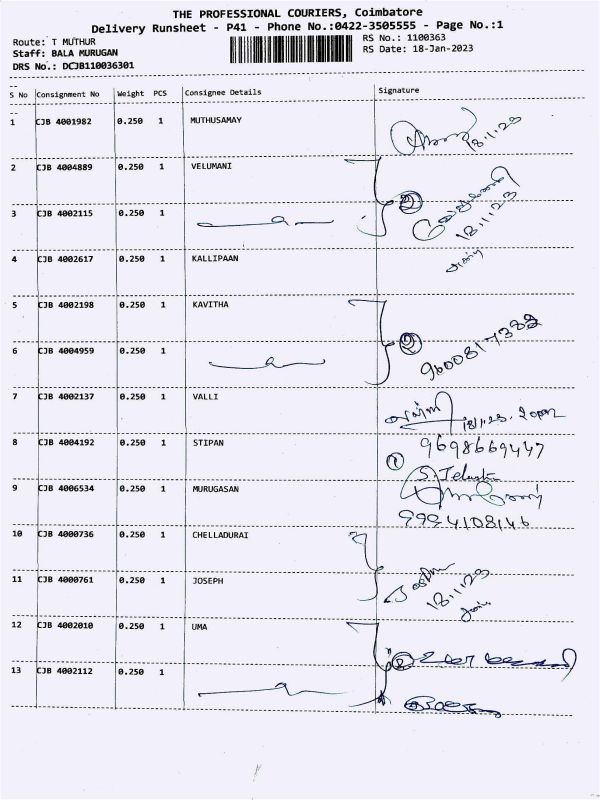 THE PROFESSIONAL COURIERS, Coimbatore
Delivery Runsheet - P41 - Phone No.:0422-3505555 - Page No.:1
Route: T MUTHUR RS No.: 1100363
Staff: BALA MURUGAN RS Date: 18-Jan-2023
DRS No.: DCJB110036301
S No Consignment No Weight PCS Consignee Details Signature
1 CJB 4001982 0.250 1 MUTHUSAMAY 18.1.23
2 CJB 4004889 0.250 1 VELUMANI
3 CJB 4002115 0.250 1 2 18.1.23
4 CJB 4002617 0.250 1 KALLIPAAN
5 CJB 4002198 0.250 1 KAVITHA
6 CJB 4004959 0.250 1 2 9600817382
7 CJB 4002137 0.250 1 VALLI வள்ளி 18.1.23.
8 CJB 4004192 0.250 1 STIPAN 1 9698669447
9 CJB 4006534 0.250 1 MURUGASAN 9994108146
10 CJB 4000736 0.250 1 CHELLADURAI
11 CJB 4000761 0.250 1 JOSEPH 18.1.23
12 CJB 4002010 0.250 1 UMA 2
13 CJB 4002112 0.250 1